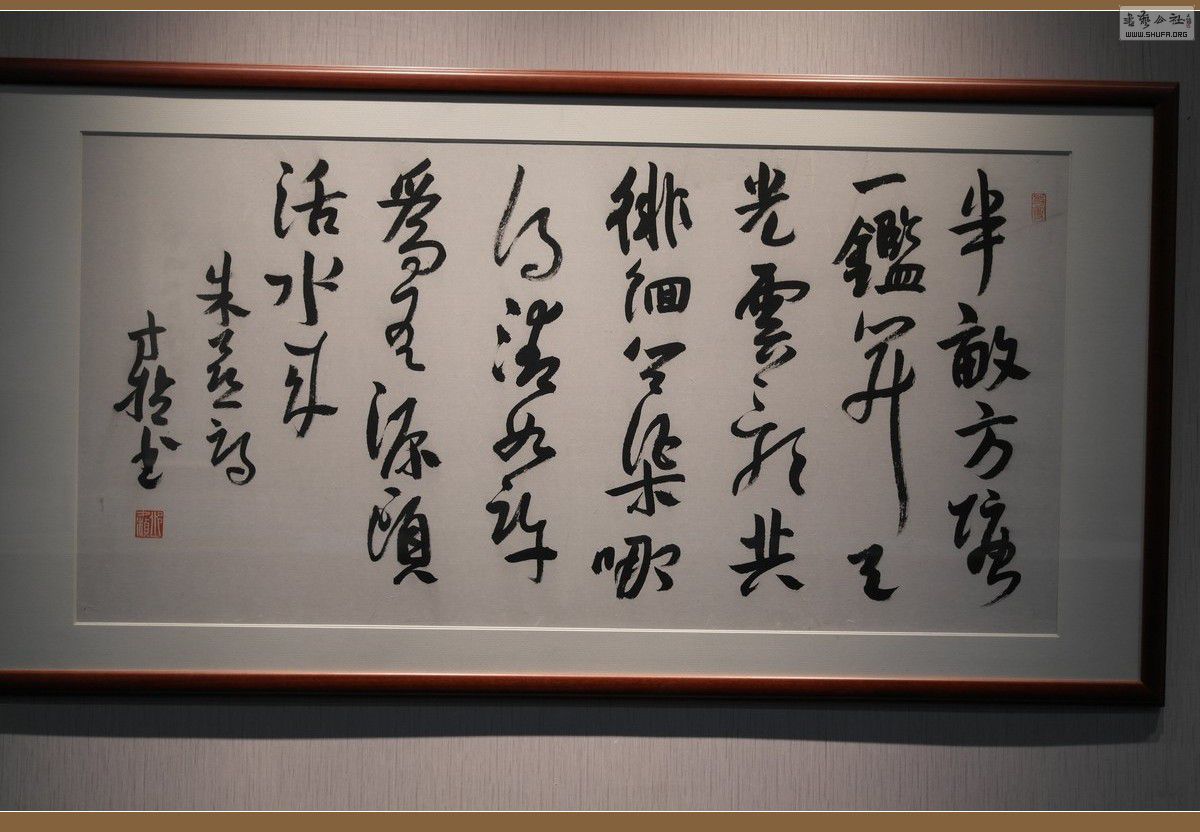 半畝方塘
一鑑開天
光雲影共
徘徊問渠哪
得清如許
爲有源頭
活水來
朱熹詩
書藝公社
WWW.SHUFA.ORG